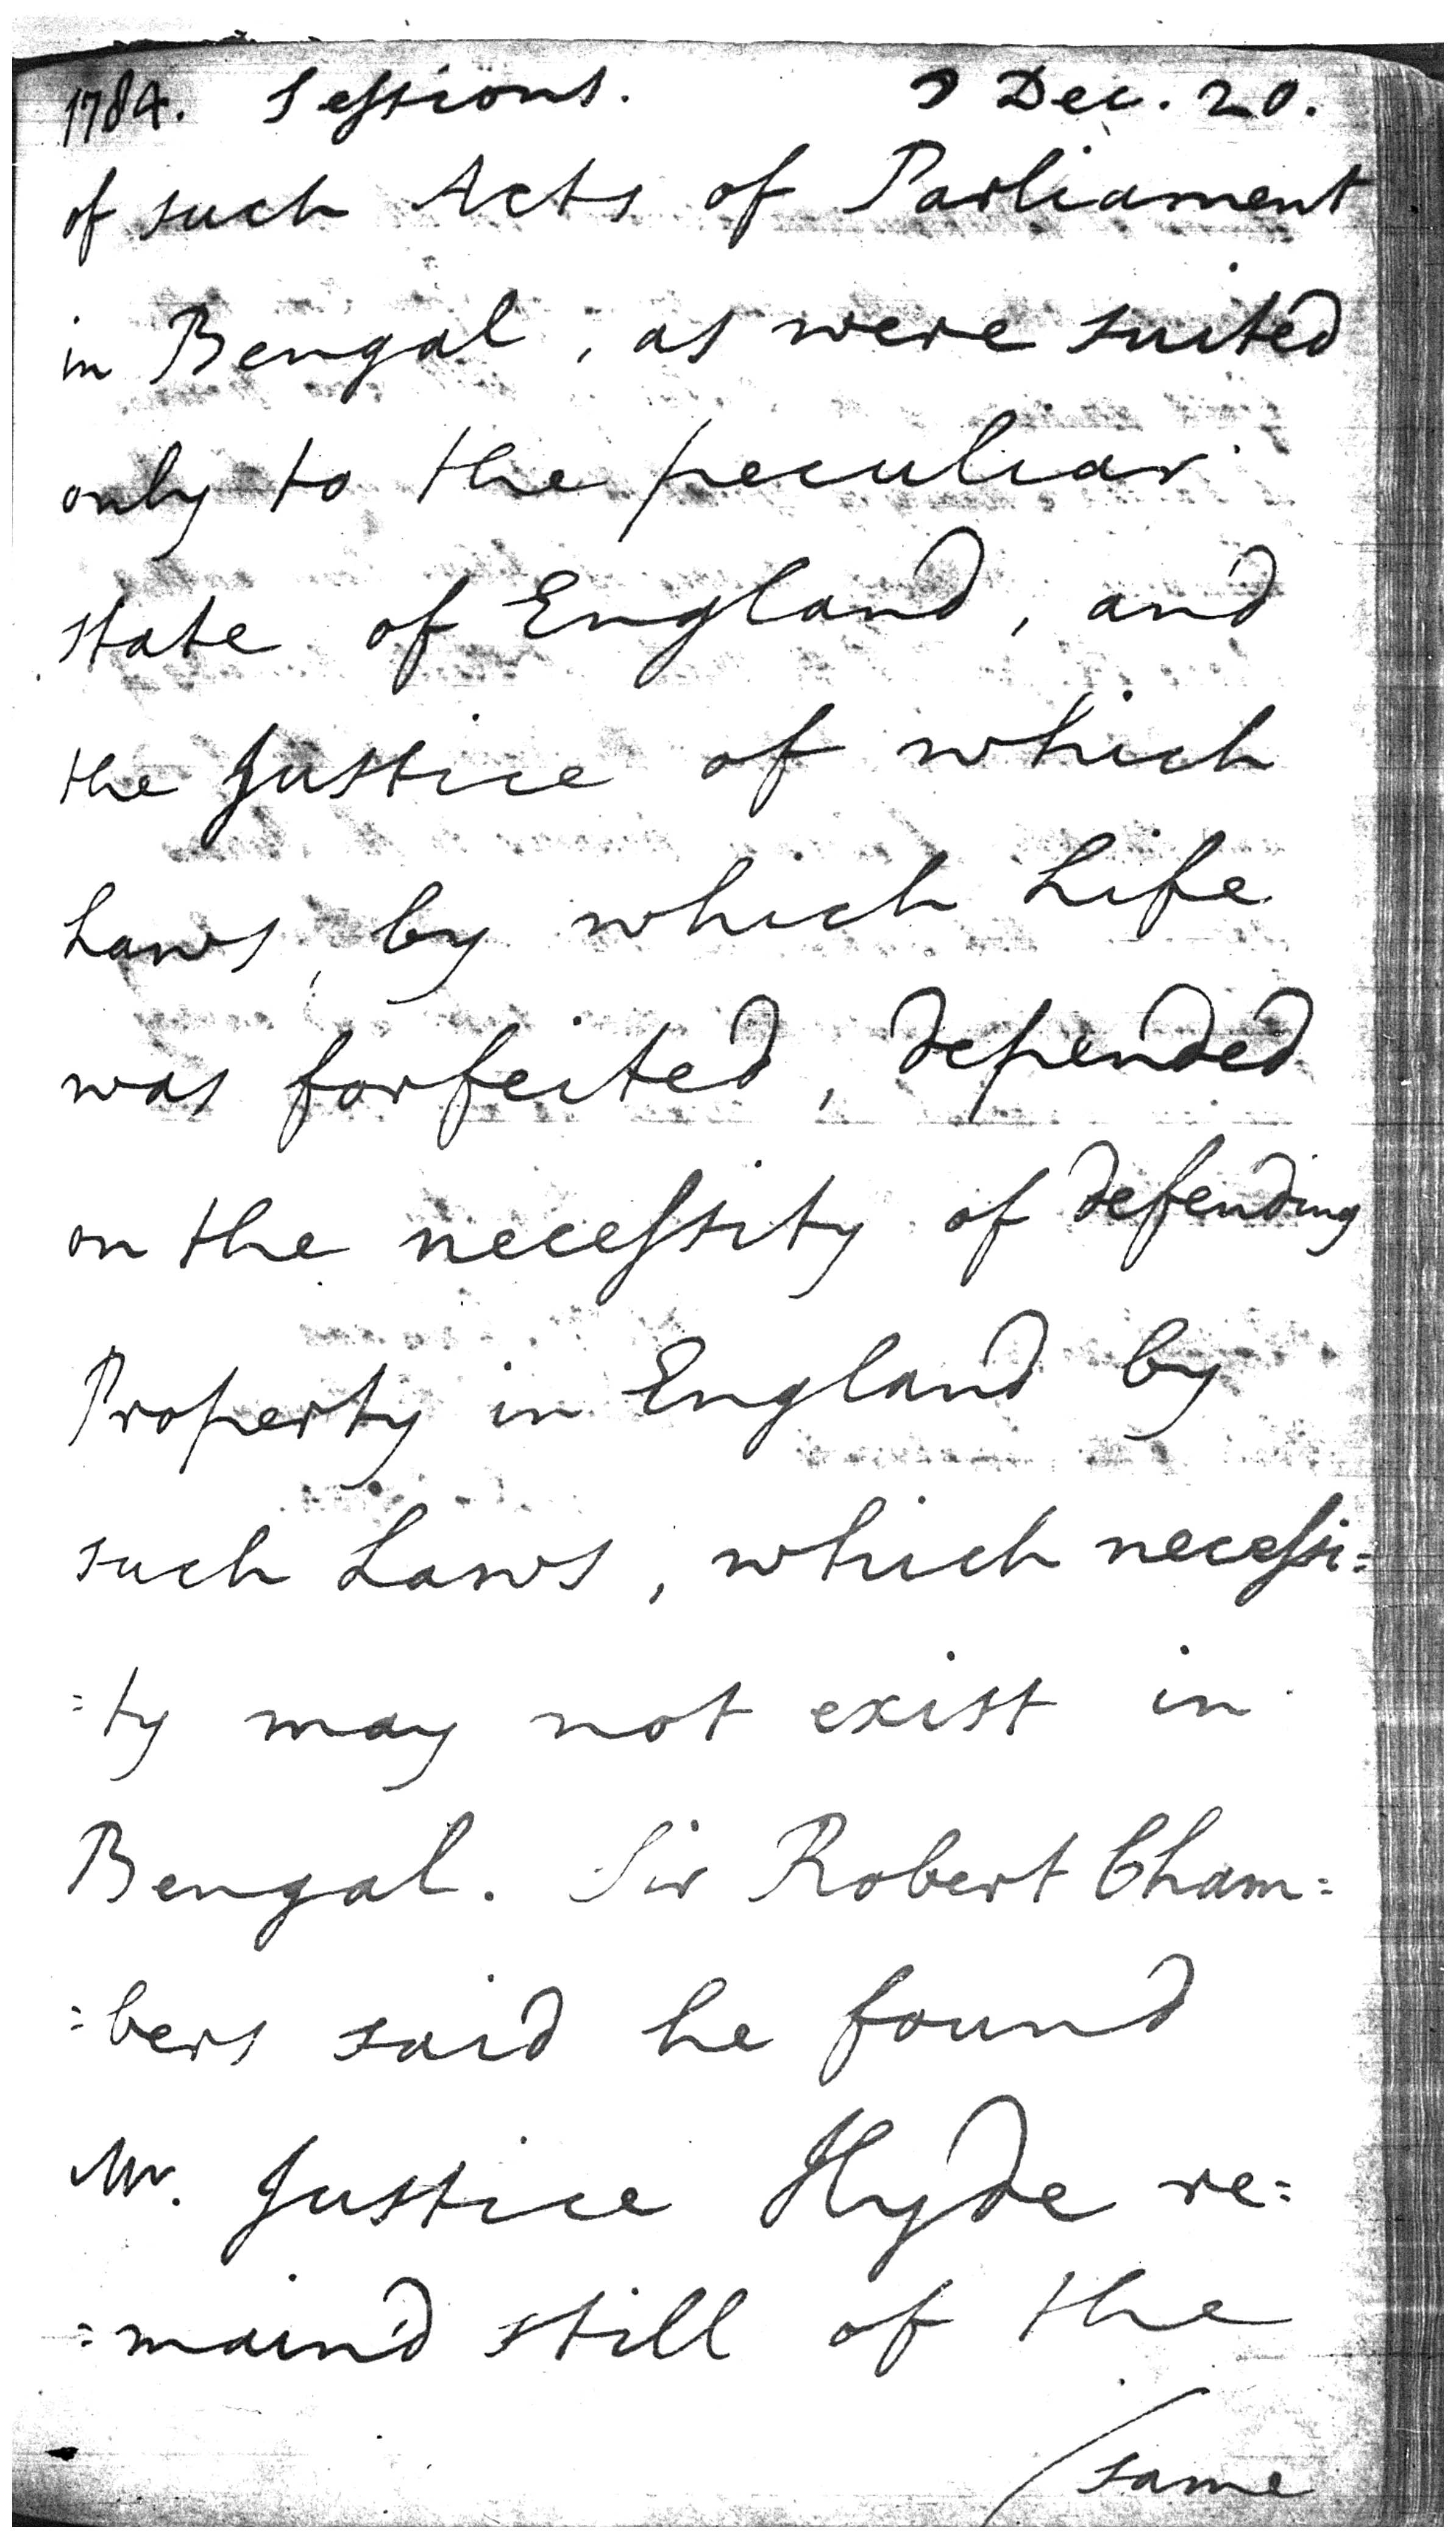 1784. Sessions. Dec. 20.
of such Acts of Parliament
in Bengal, as were suited
only to the peculiar
state of England, and
the Justice of which
Laws, by which Life
was forfeited, depended
on the necessity of defending
Property in England by
such Laws, which necessi=
=ty may not exist in
Bengal. Sir Robert Cham=
=bers said he found
Mr. Justice Hyde re=
=main'd still of the
same